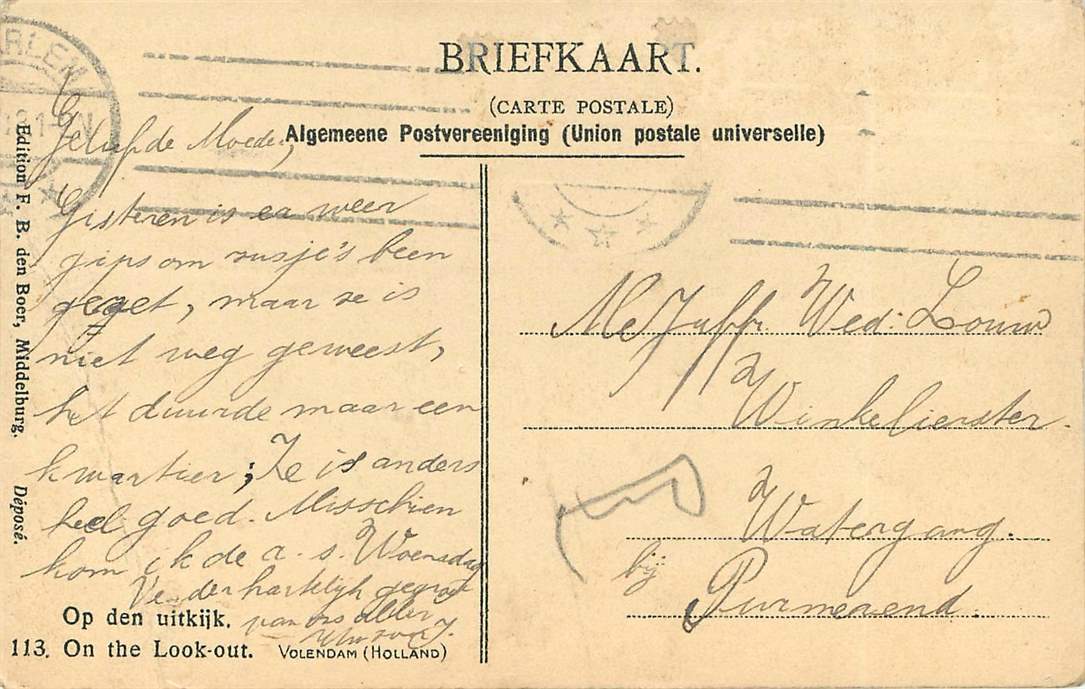 BRIEFKAART.
(CARTE POSTALE)
Algemeene Postvereeniging (Union postale universelle)
Geliefde Moeder,
Gisteren is er weer
gips om zusje's been
geget, maar ze is
niet weg geweest,
het duurde maar een
kwartier; Ze is anders
heel goed. Misschien
kom ik de a. s. Woensdag
Verder hartelijk gegroet
van ons allen
Uw zoon J.
MeJuffr Wed: Louw
Winkelierster.
Watergang.
bij
Purmerend.
Edition F. B. den Boer, Middelburg. Déposé.
Op den uitkijk.
113. On the Look-out. VOLENDAM (HOLLAND)